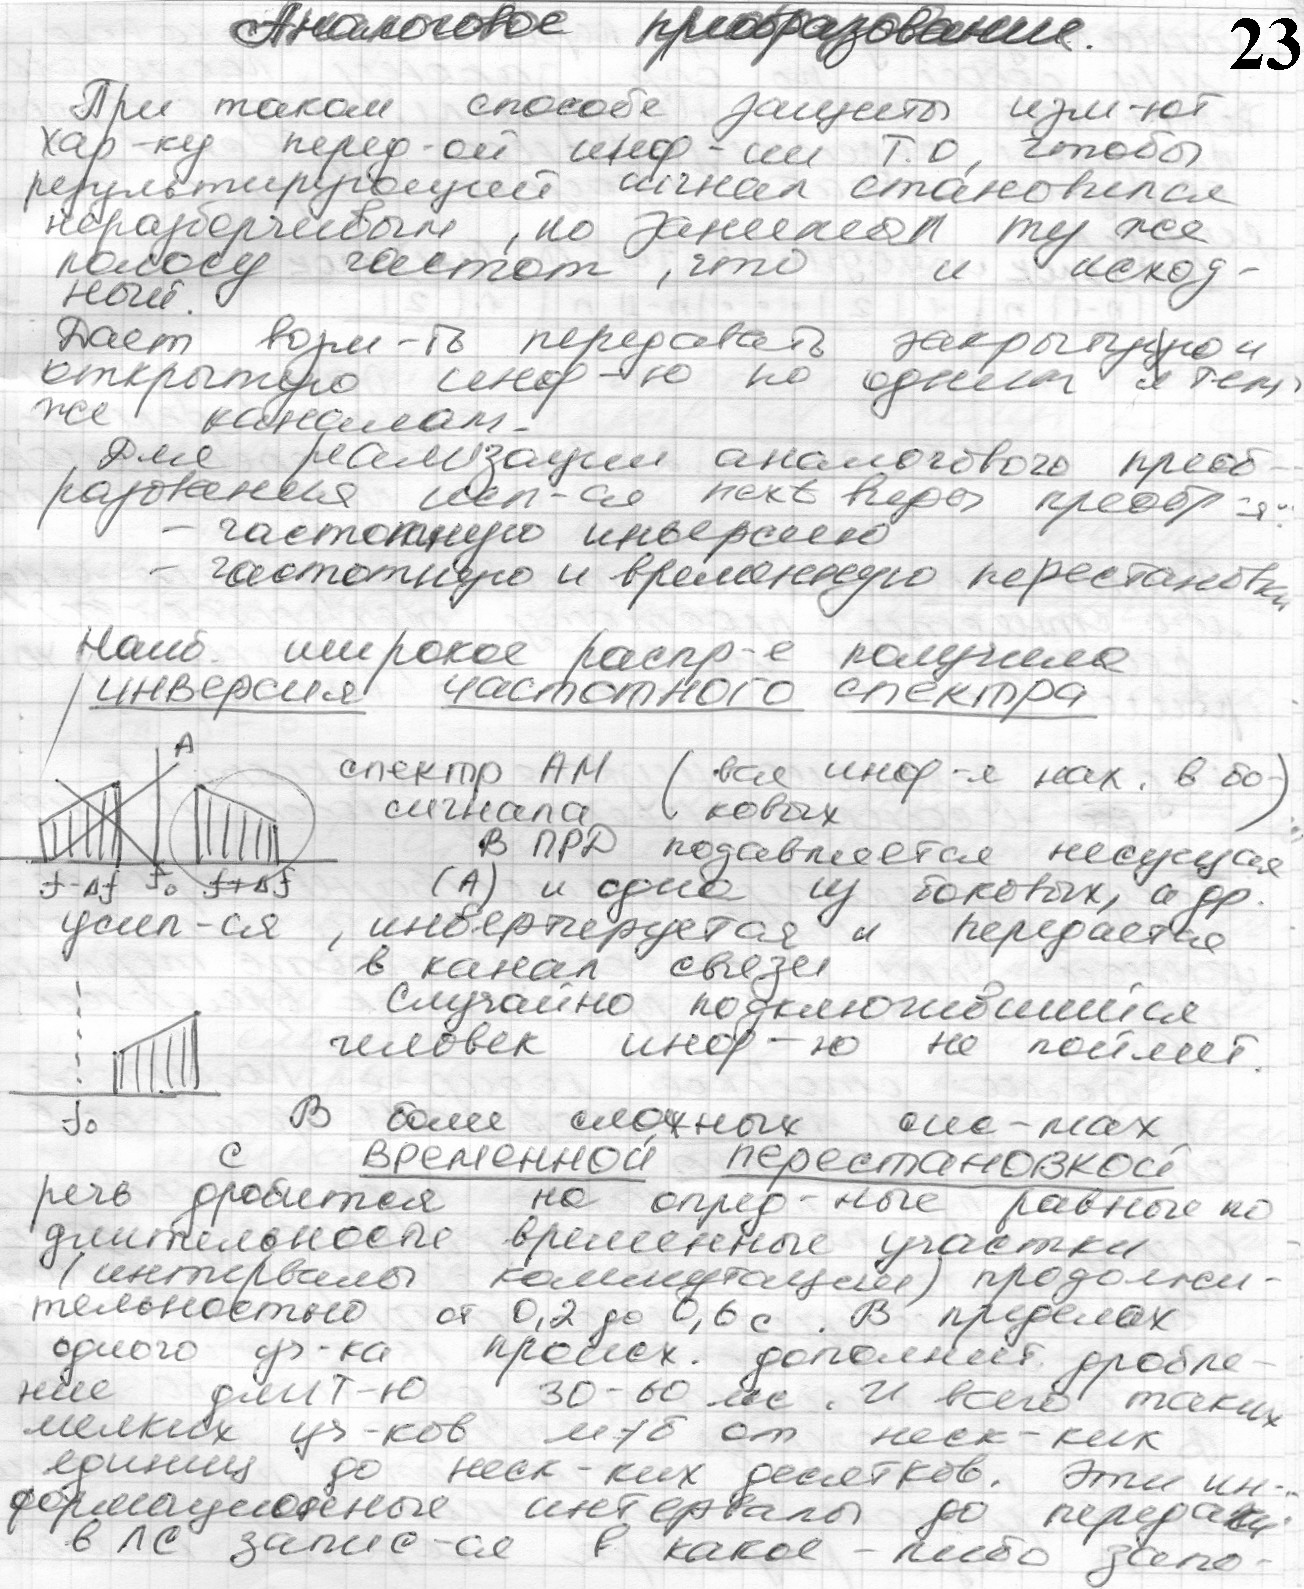 Аналоговое преобразование.
23
При таком способе защиты изм-ют
хар-ку перед-ой инф-ии т.о, чтобы
результирующий сигнал становился
неразборчивым, но занимал ту же
полосу частот, что и исход-
ный.
Дает возм-ть передавать закрытую и
открытую инф-ю по одним и тем
же каналам.
Для реализации аналогового преоб-
разования исп-ся next виды преобр-я:
- частотную инверсию
- частотную и временную перестановки
Наиб. широкое распр-е получила
инверсия частотного спектра
A
спектр АМ (вся инф-я нах. в бо-)
сигнала (ковых
В ПРД подавляется несущая
f-Δf f₀ f+Δf
(А) и одна из боковых, а др.
усил-ся, инвертируется и передается
в канал связи
Случайно подключившийся
человек инф-ю не поймет.
f₀
В более сложных сис-мах
с временной перестановкой
речь дробится на опред-ные равные по
длительности временные участки
(интервалы коммутации) продолжи-
тельностью от 0,2 до 0,6 с. В пределах
одного уч-ка происх. дополнит. дробле-
ние длит-ю 30-60 мс. И всего таких
мелких уч-ков м/б от неск-ких
единиц до неск-ких десятков. Эти ин-
формационные интервалы до передачи
в ЛС запис-ся в какое-либо запо-